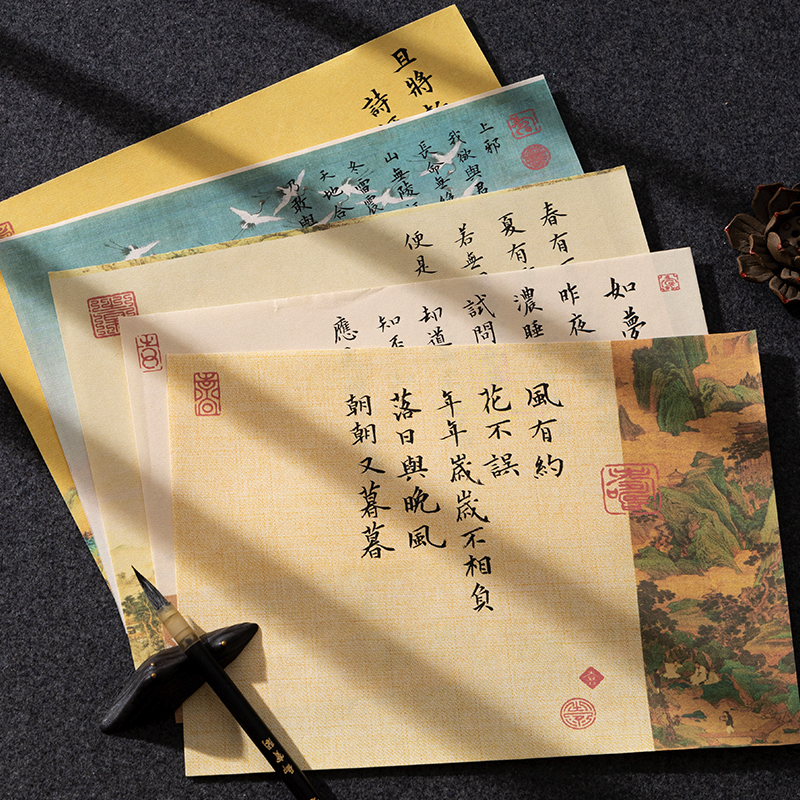 且將
詩
上邪
我欲與君
長命無
山無陵
冬雷震
天地合
乃敢與
春有
夏有
若無
便是
如夢
昨夜
濃睡
試問
却道
知否
應
風有約
花不誤
年年歲歲不相負
落日與晚風
朝朝又暮暮